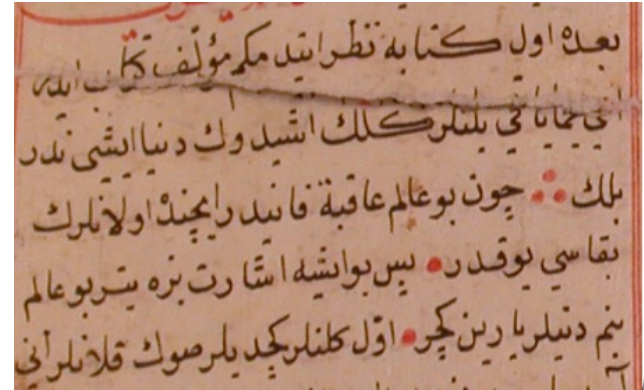 بعده اول كتابه نظر ايتدم كم مؤلف كتاب ايده
اي يلنلر كلك اشيدوك دنيا ايشى ندر
بلك چون بو عالم عاقبة فانيدر ايچنده اولانلرك
بقاسي يوقدر بس بو ايشه اشارت بزه يتر بو عالم
بنم دينلر يارين كچر اول كلنلر كچديلر صوك قلانلر آني